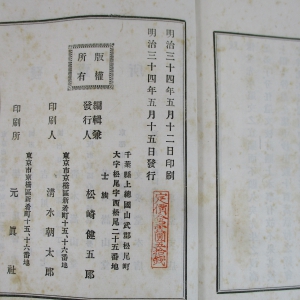 明治三十四年五月十二日印刷
明治三十四年五月十五日發行
千葉縣上總國山武郡松尾町
大字松尾字西松尾二十五番地
士族
編輯兼
發行人
松崎健五郎
東京市京橋區新肴町十五、十六番地
印刷人
清水朝太郎
東京市京橋區新肴町十五、十六番地
印刷所
元眞社
版權
所有